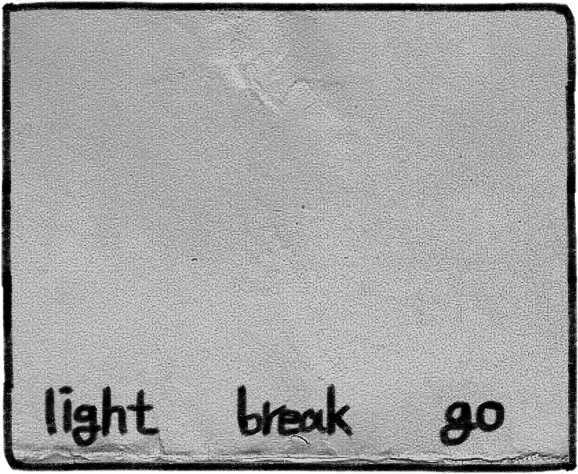 light break go